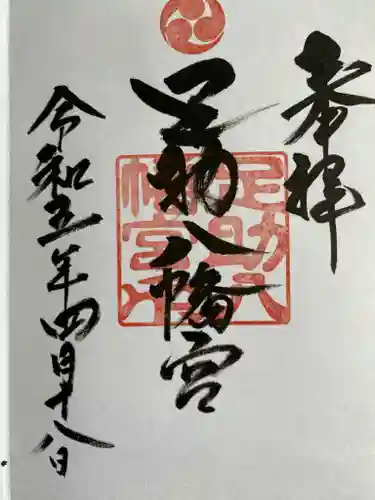 奉拝
足助八幡宮
足助八幡宮之印
令和五年四月十八日